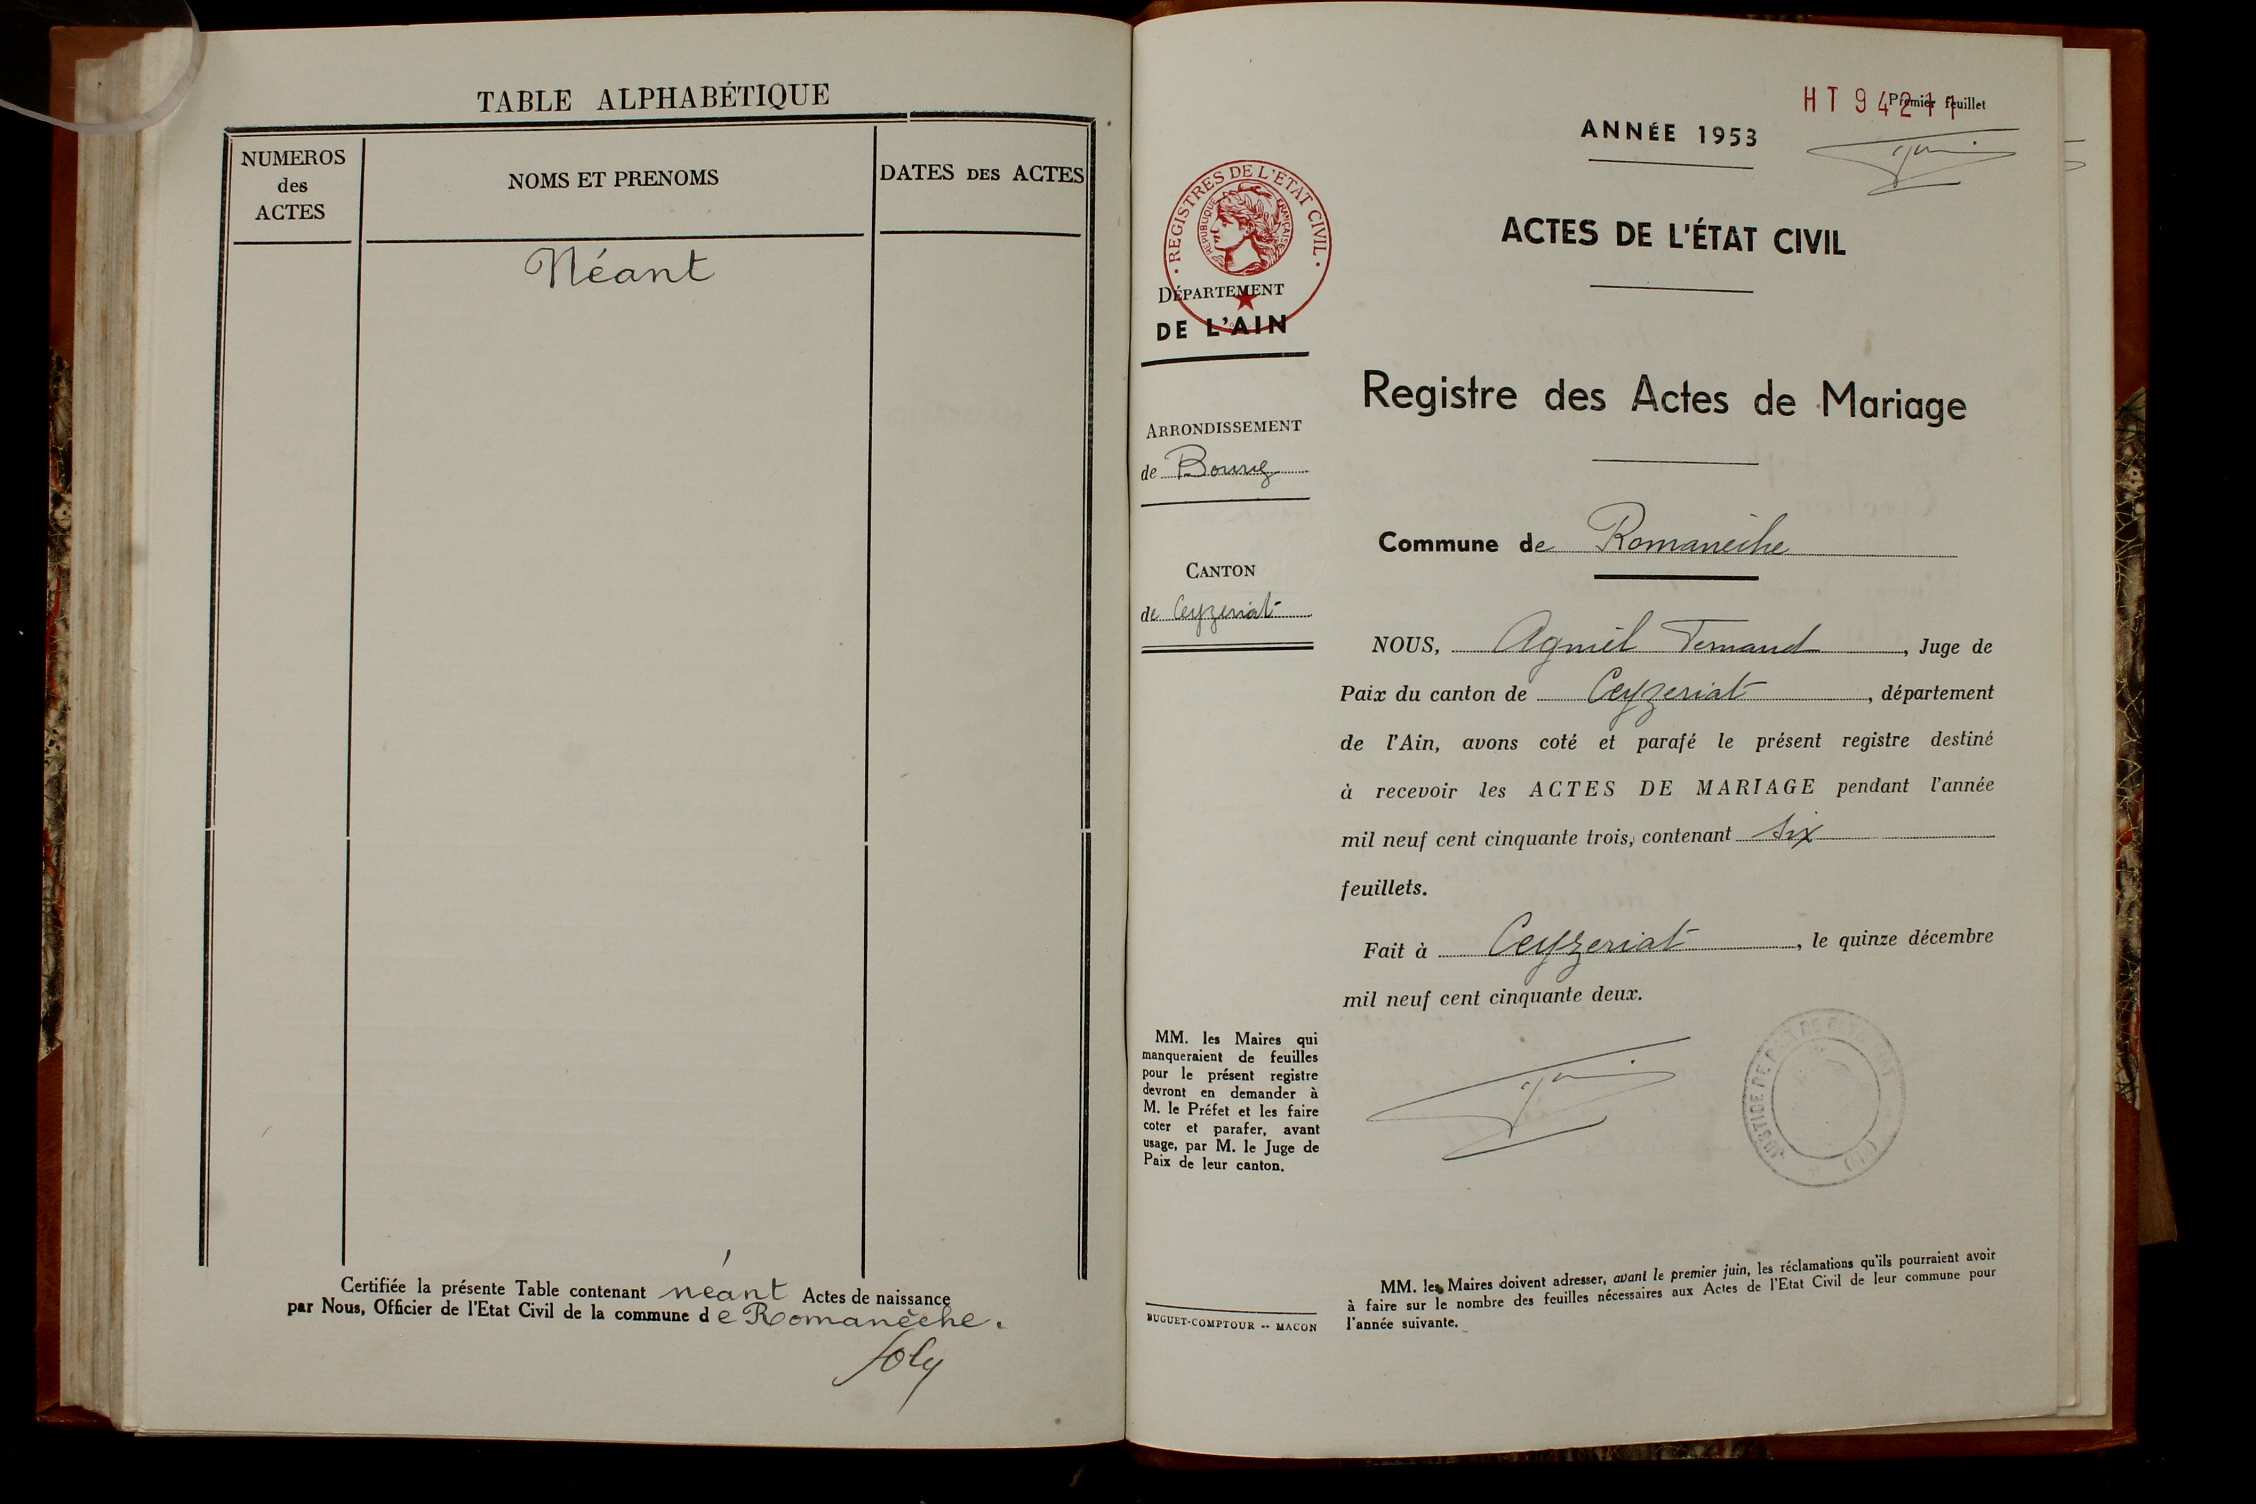 TABLE ALPHABÉTIQUE
NUMEROS
des
ACTES
NOMS ET PRENOMS
DATES DES ACTES
Néant
Certifiée la présente Table contenant néant Actes de naissance
par Nous, Officier de l'Etat Civil de la commune de Romanèche.
Joly
HT 94211
Premier feuillet
ANNÉE 1953
REGISTRES DE L'ÉTAT CIVIL
RÉPUBLIQUE FRANÇAISE
ACTES DE L'ÉTAT CIVIL
DÉPARTEMENT
DE L'AIN
Registre des Actes de Mariage
ARRONDISSEMENT
de Bourg
Commune de Romanèche
CANTON
de Ceyzeriat
NOUS, Agniel Fernand, Juge de
Paix du canton de Ceyzeriat, département
de l'Ain, avons coté et parafé le présent registre destiné
à recevoir les ACTES DE MARIAGE pendant l'année
mil neuf cent cinquante trois, contenant six
feuillets.
Fait à Ceyzeriat, le quinze décembre
mil neuf cent cinquante deux.
MM. les Maires qui
manqueraient de feuilles
pour le présent registre
devront en demander à
M. le Préfet et les faire
coter et parafer, avant
usage, par M. le Juge de
Paix de leur canton.
BUGUET-COMPTOUR -- MACON
MM. les Maires doivent adresser, avant le premier juin, les réclamations qu'ils pourraient avoir
à faire sur le nombre des feuilles nécessaires aux Actes de l'Etat Civil de leur commune pour
l'année suivante.